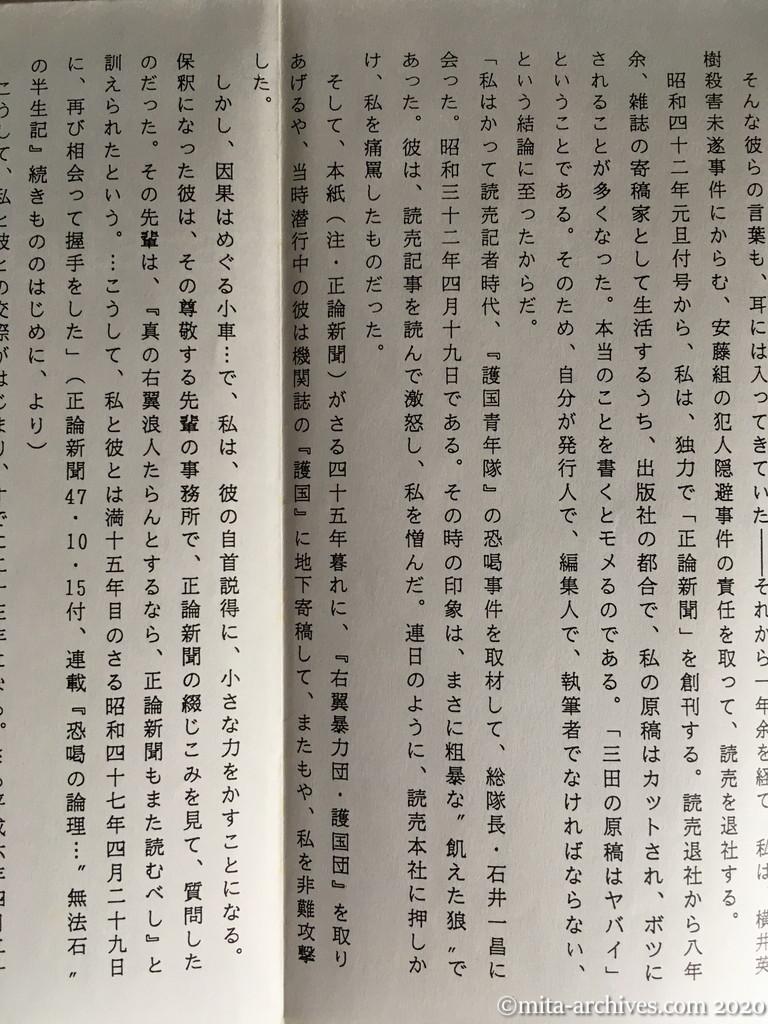 そんな彼らの言葉も、耳には入ってきていた――それから一年余を経て、私は、横井英
樹殺害未遂事件にからむ、安藤組の犯人隠避事件の責任を取って、読売を退社する。
昭和四十二年元旦付号から、私は、独力で「正論新聞」を創刊する。読売退社から八年
余、雑誌の寄稿家として生活するうち、出版社の都合で、私の原稿はカットされ、ボツに
されることが多くなった。本当のことを書くとモメるのである。「三田の原稿はヤバイ」
ということである。そのため、自分が発行人で、編集人で、執筆者でなければならない、
という結論に至ったからだ。
「私はかって読売記者時代、『護国青年隊』の恐喝事件を取材して、総隊長・石井一昌に
会った。昭和三十二年四月十九日である。その時の印象は、まさに粗暴な〝飢えた狼〟で
あった。彼は、読売記事を読んで激怒し、私を憎んだ。連日のように、読売本社に押しか
け、私を痛罵したものだった。
そして、本紙（注・正論新聞）がさる四十五年暮れに、『右翼暴力団・護国団』を取り
あげるや、当時潜行中の彼は機関誌の『護国』に地下寄稿して、またもや、私を非難攻撃
した。
しかし、因果はめぐる小車…で、私は、彼の自首説得に、小さな力をかすことになる。
保釈になった彼は、その尊敬する先輩の事務所で、正論新聞の綴じこみを見て、質問した
のだった。その先輩は、『真の右翼浪人たらんとするなら、正論新聞もまた読むべし』と
訓えられたという。…こうして、私と彼とは満十五年目のさる昭和四十七年四月二十九日
に、再び相会って握手をした」（正論新聞47・10・15付、連載『恐喝の論理…〝無法石〟
の半生記』続きもののはじめに、より）
こうして、私と彼との交際がはじまり、すでに二十
©mita-archives.com 2020